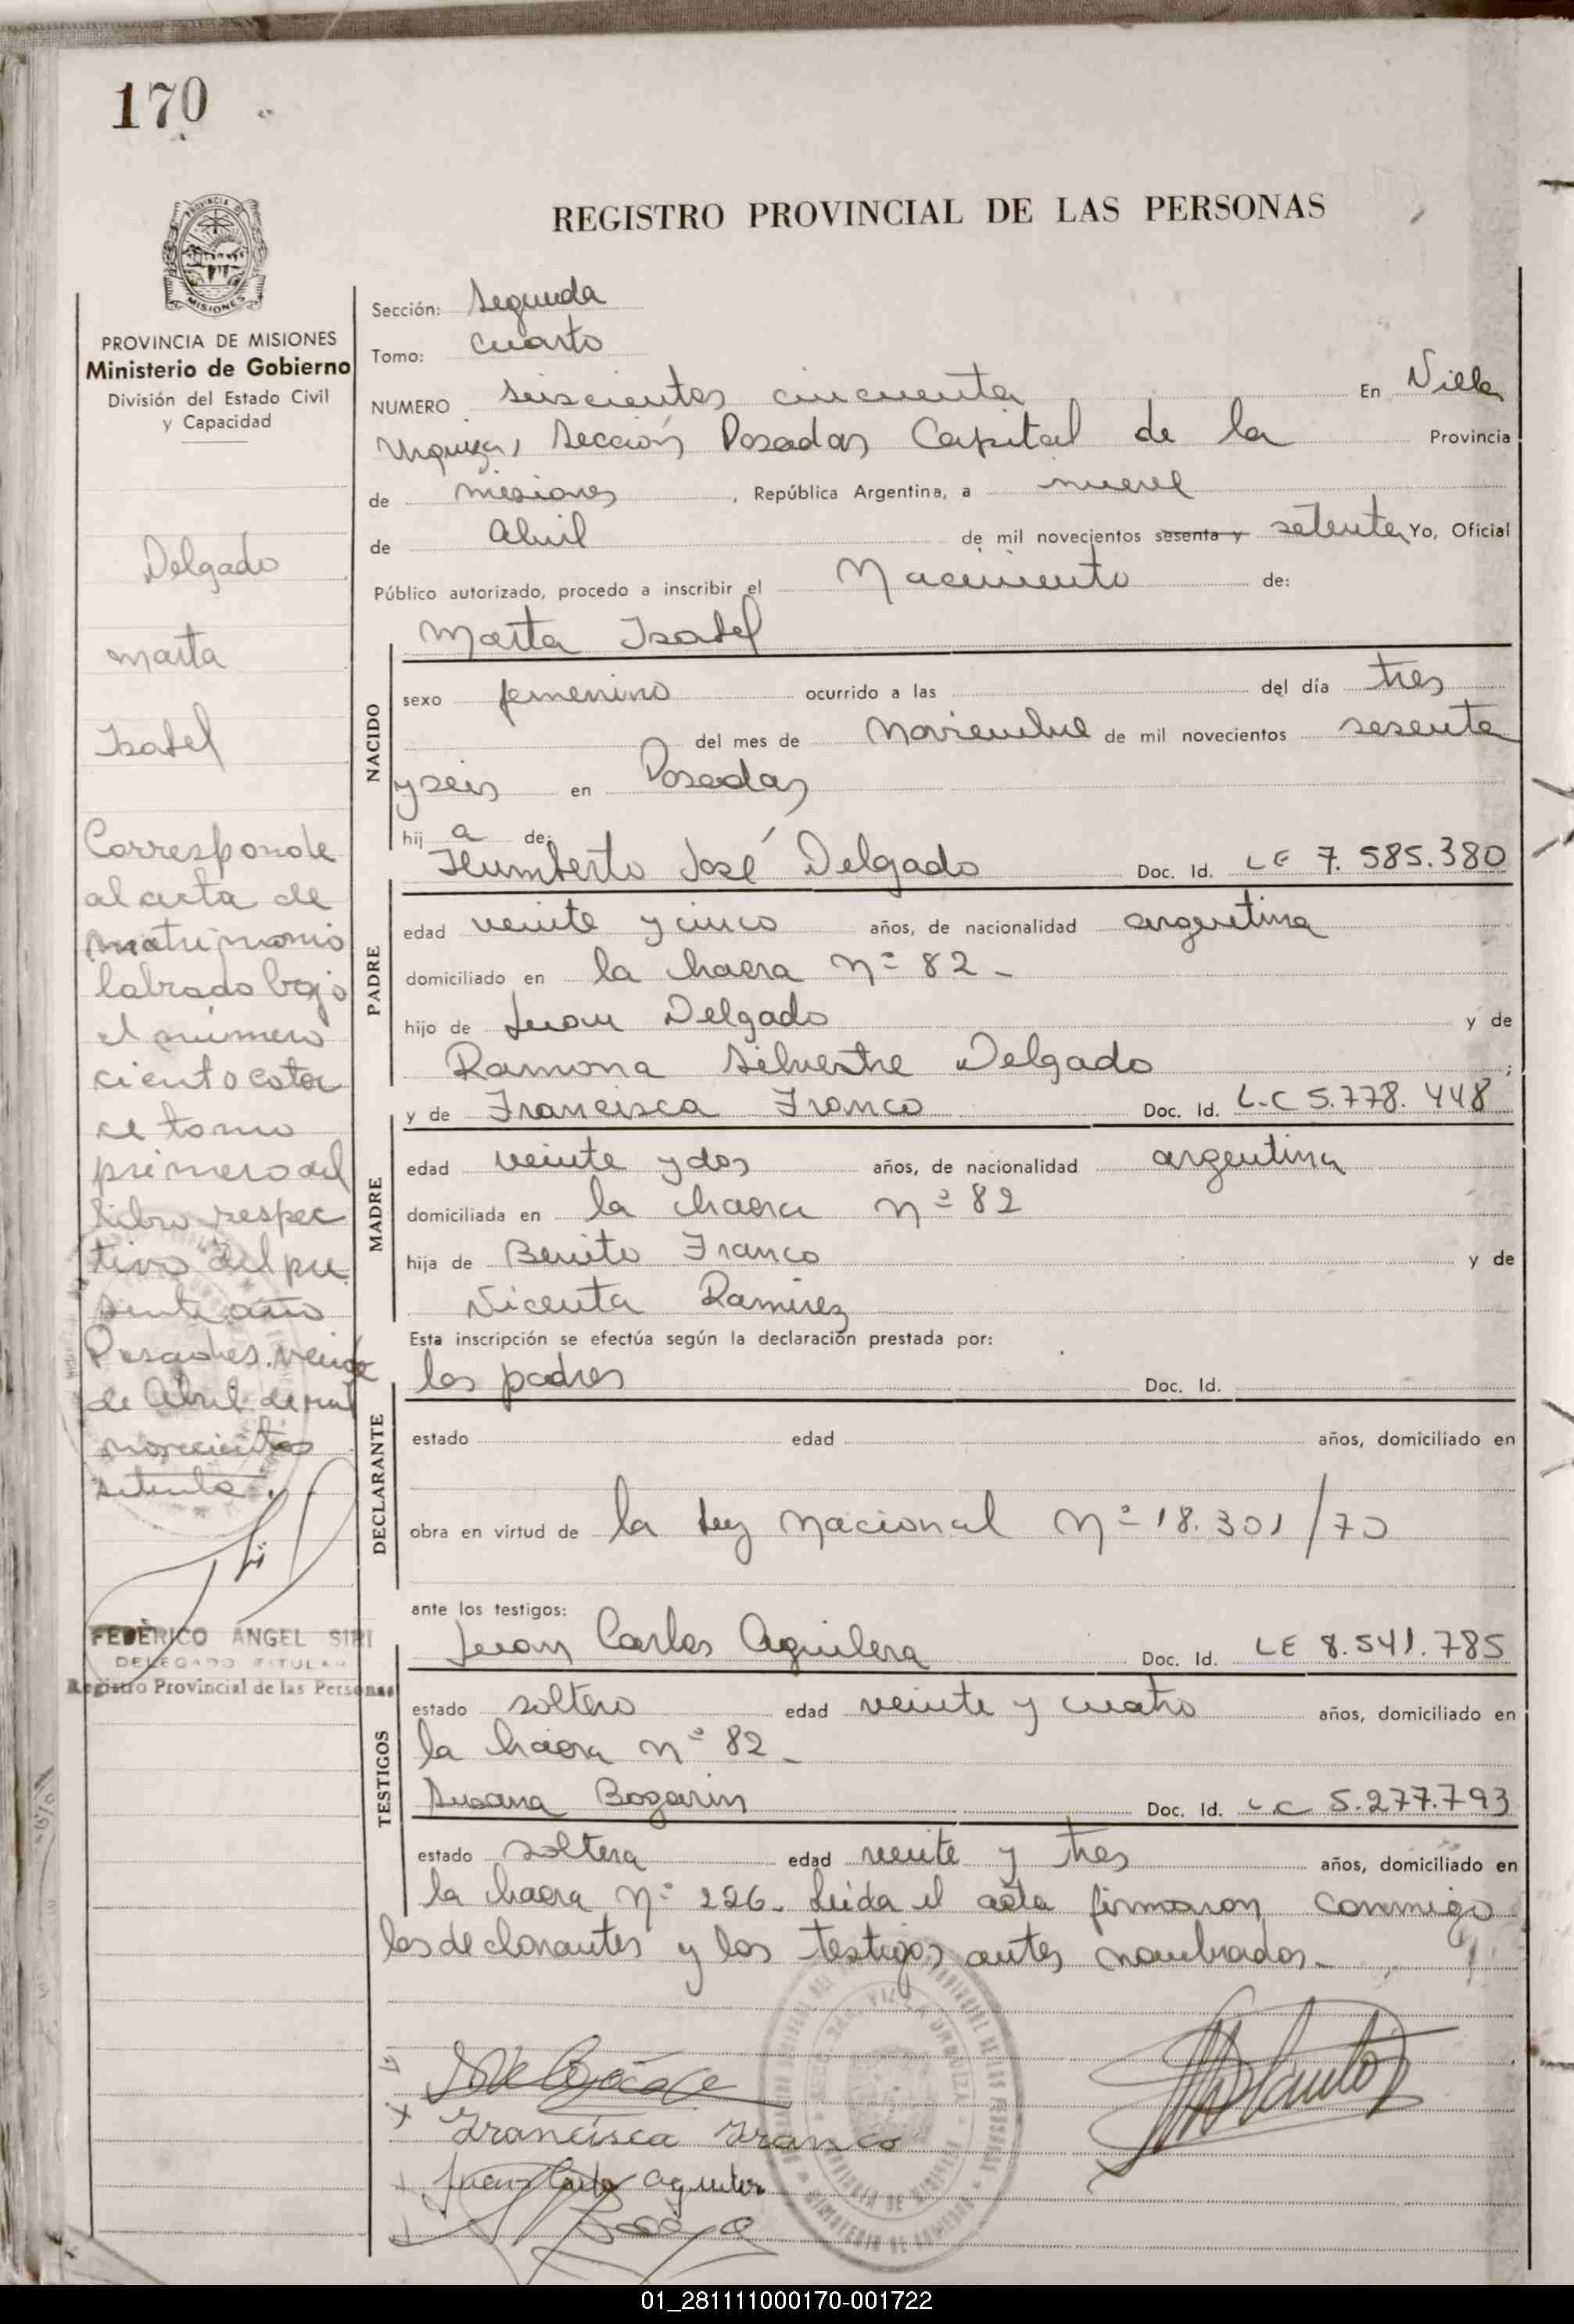 170
REGISTRO PROVINCIAL DE LAS PERSONAS
PROVINCIA DE
MISIONES
PROVINCIA DE MISIONES
Ministerio de Gobierno
División del Estado Civil
y Capacidad
Delgado
Marta
Isabel
Corresponde
al acta de
matrimonio
labrado bajo
el número
ciento cator
ce tomo
primero del
libro respec
tivo del pre
sente año
Posadas, veinte
de Abril de mil
novecientos
setenta.
FEDERICO ANGEL SIRI
DELEGADO TITULAR
Registro Provincial de las Personas
Sección: Segunda
Tomo: Cuarto
NUMERO seiscientos cincuenta En Villa
Urquiza, Sección Posadas Capital de la Provincia
de Misiones, República Argentina, a nueve
de Abril de mil novecientos sesenta y setenta Yo, Oficial
Público autorizado, procedo a inscribir el Nacimiento de:
Marta Isabel
NACIDO
sexo femenino ocurrido a las del día tres
del mes de Noviembre de mil novecientos sesenta
y seis en Posadas
hij a de:
Humberto José Delgado Doc. Id. LE 7.585.380
PADRE
edad veinte y cinco años, de nacionalidad argentina
domiciliado en la chacra Nº 82 -
hijo de Juan Delgado y de
Ramona Silvestre Delgado ;
y de Francisca Franco Doc. Id. L.C 5.778.448
MADRE
edad veinte y dos años, de nacionalidad argentina
domiciliada en la chacra nº 82
hija de Benito Franco y de
Vicenta Ramirez
Esta inscripción se efectúa según la declaración prestada por:
los padres Doc. Id.
DECLARANTE
estado edad años, domiciliado en
obra en virtud de la Ley Nacional Nº 18.301/70
ante los testigos:
Juan Carlos Aguilera Doc. Id. LE 8.541.785
TESTIGOS
estado soltero edad veinte y cuatro años, domiciliado en
la chacra nº 82 -
Susana Bogarin Doc. Id. LC 5.277.793
estado soltera edad veinte y tres años, domiciliado en
la chacra Nº 226. Leida el acta firmaron conmigo
los declarantes y los testigos antes nombrados.-
Francisca Franco
Juan Carlo Aguilera
01_281111000170-001722